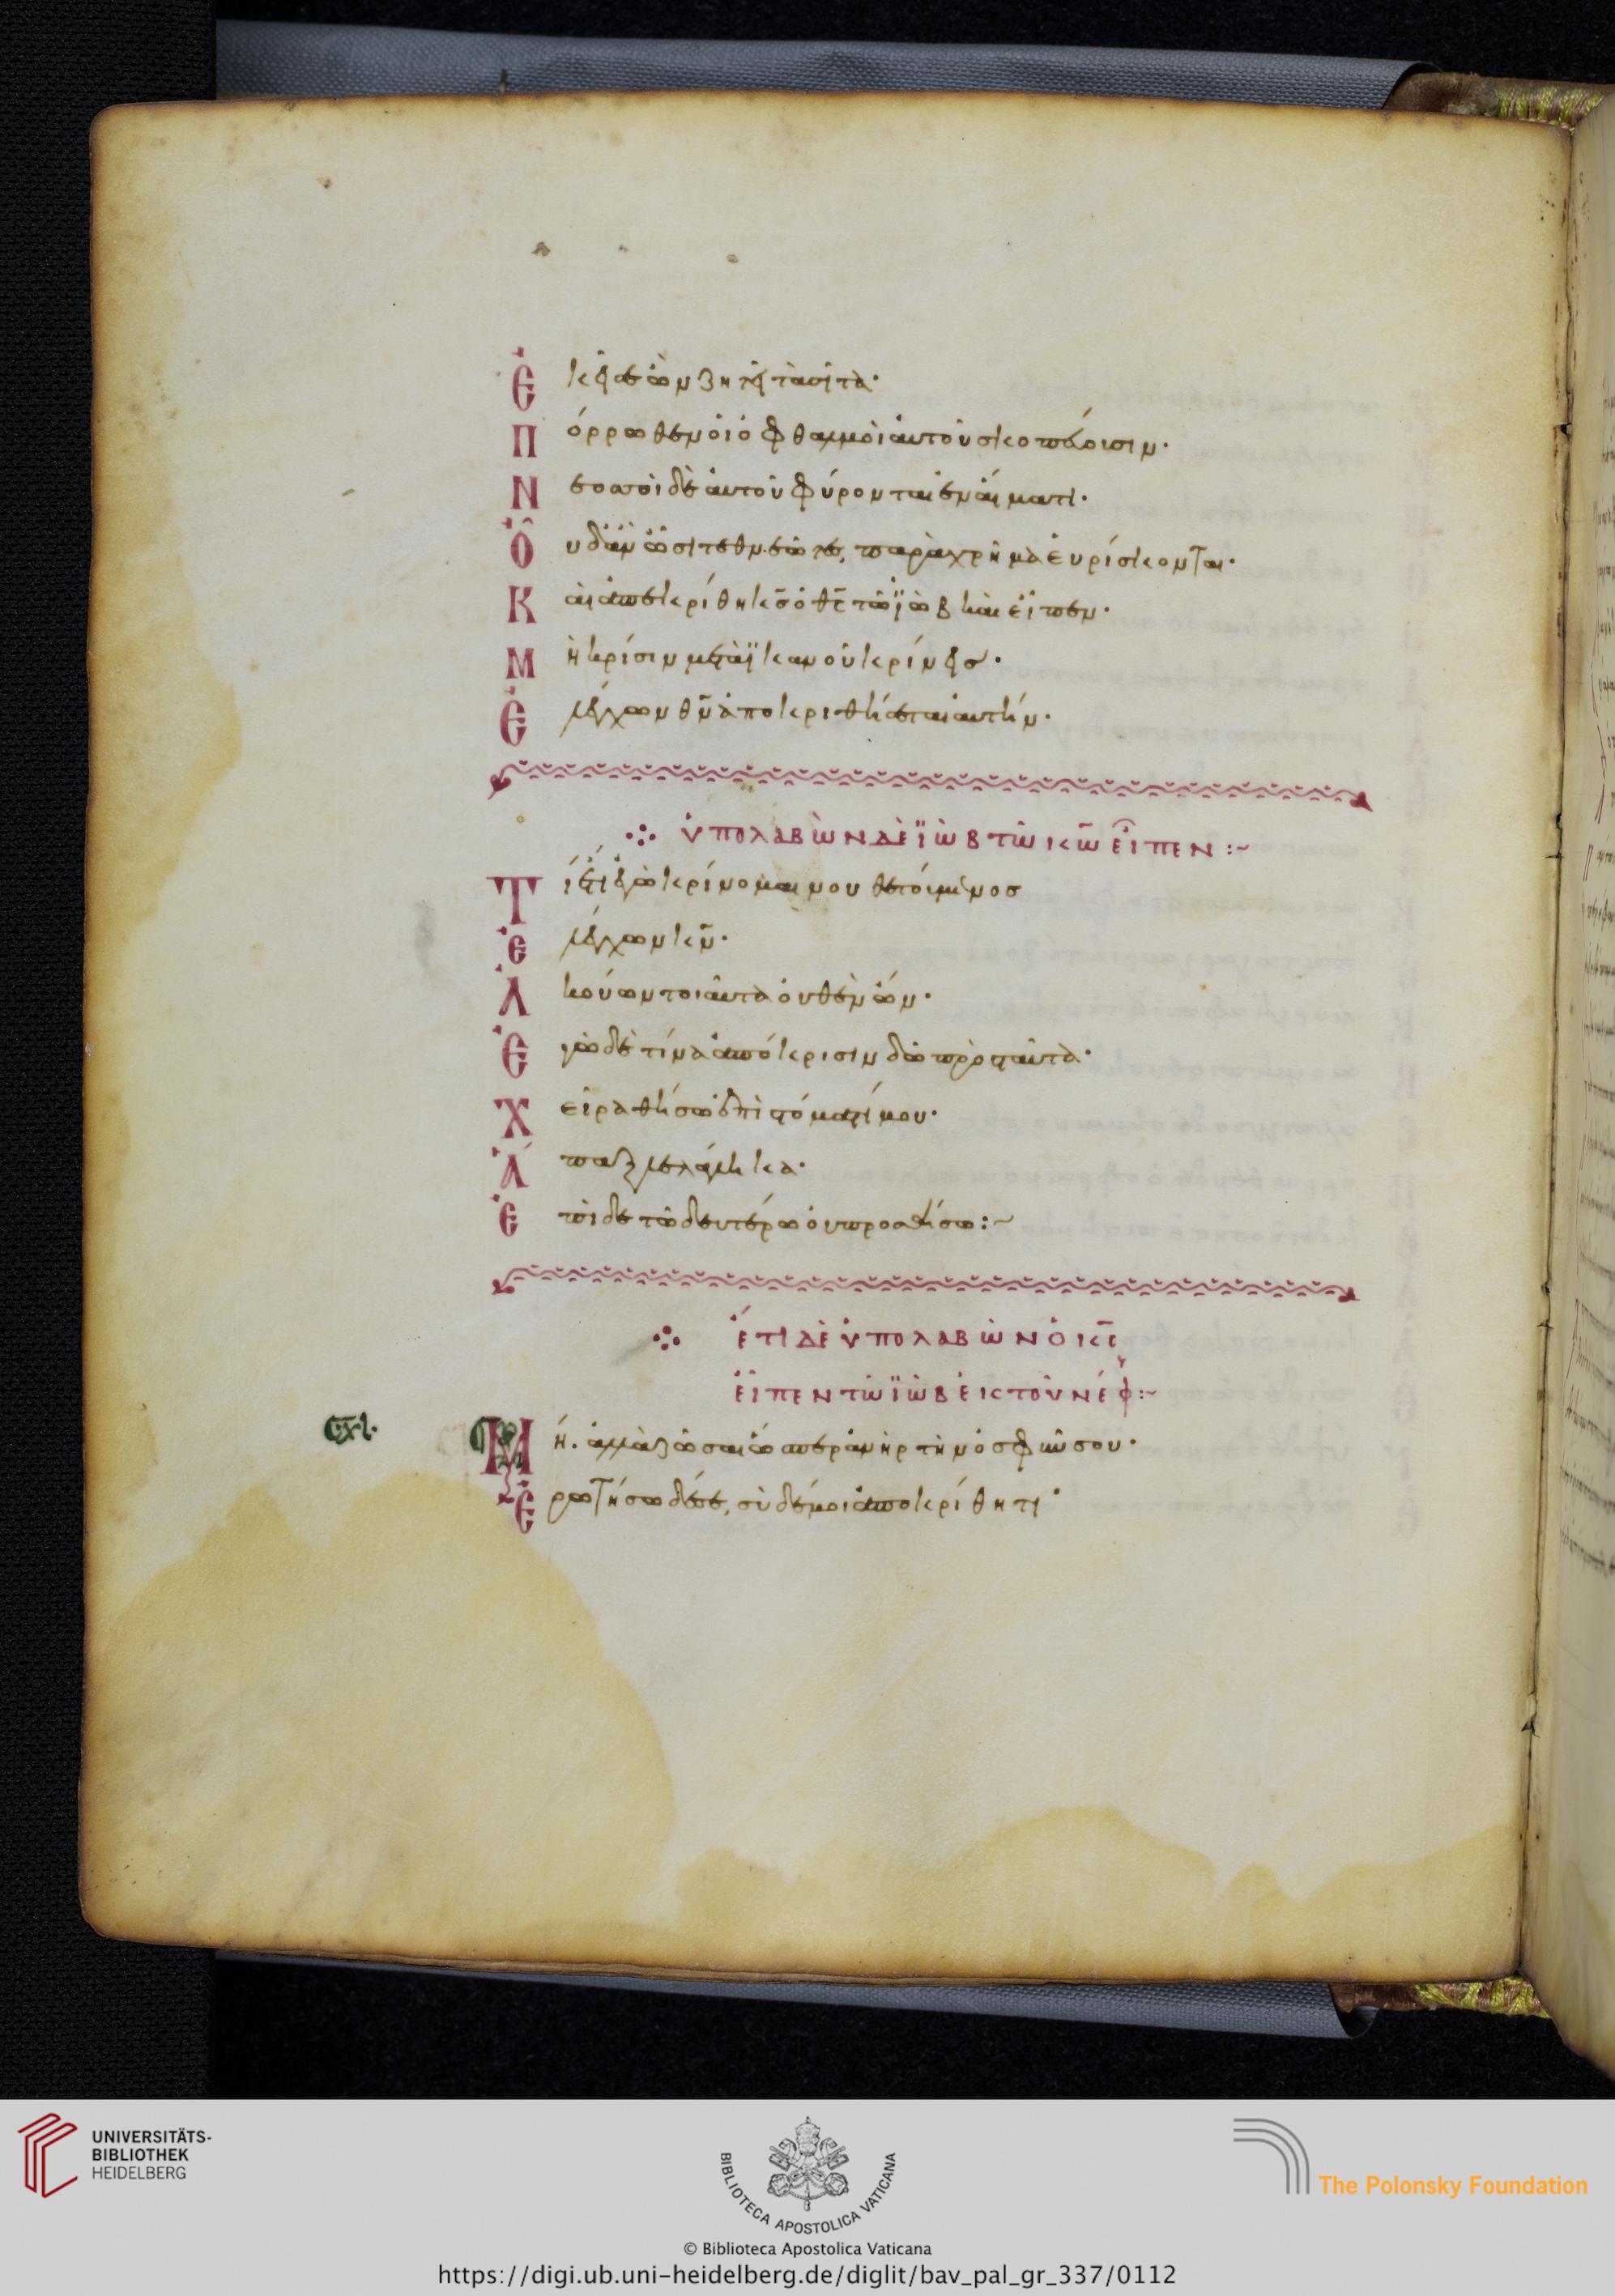 Ἐκεῖσε ὢν ζητεῖ τὰ σῖτα·
Πόρρωθεν οἱ ὀφθαλμοὶ αὐτοῦ σκοπεύουσιν·
Νεοσσοὶ δὲ αὐτοῦ φύρονται ἐν αἵματι·
Οὗ δ' ἂν ὦσι τεθνεῶτες, παραχρῆμα εὑρίσκονται·
Καὶ ἀπεκρίθη κς ὁ θς τῶ ϊὼβ καὶ εἶπεν·
Μὴ κρίσιν μετὰ ϊκανοῦ κρίνεις·
Ἐλέγχων θν ἀποκριθήσεται αὐτήν·
ὑπολαβὼν δὲ ϊὼβ τῶ κω εἶπεν :~
Τί ἔτι ἐγὼ κρίνομαι νουθετούμενος
Ἐλέγχων κν·
Ἀκούων τοιαῦτα οὐθὲν ὤν·
Ἐγὼ δὲ τίνα ἀπόκρισιν δῶ πρὸς ταῦτα·
Χεῖρα θήσω ἐπὶ στόματί μου·
Ἅπαξ λελάληκα·
Ἐπὶ δὲ τῶ δευτέρω οὐ προσθήσω :~
ἔτι δὲ ὑπολαβὼν ὁ κς
εἶπεν τῶ ϊὼβ ἐκ τοῦ νέφ :~
Μή. ἀλλὰ ζῶσαι ὥσπερ ἀνὴρ τὴν ὀσφῦν σου·
Ἐρωτήσω δέ σε, σὺ δέ μοι ἀποκρίθητι·
UNIVERSITÄTS-
BIBLIOTHEK
HEIDELBERG
BIBLIOTECA APOSTOLICA VATICANA
The Polonsky Foundation
© Biblioteca Apostolica Vaticana
https://digi.ub.uni-heidelberg.de/diglit/bav_pal_gr_337/0112